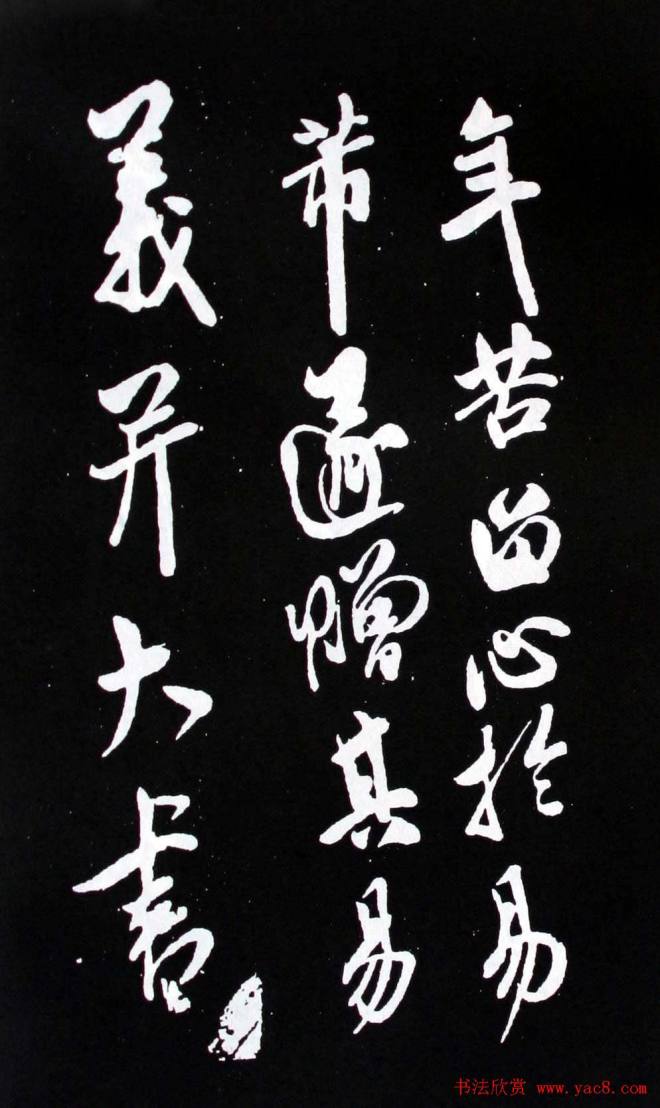 年苦留心於易
芾遂贈其易
義并大書
书法欣赏 www.yac8.com